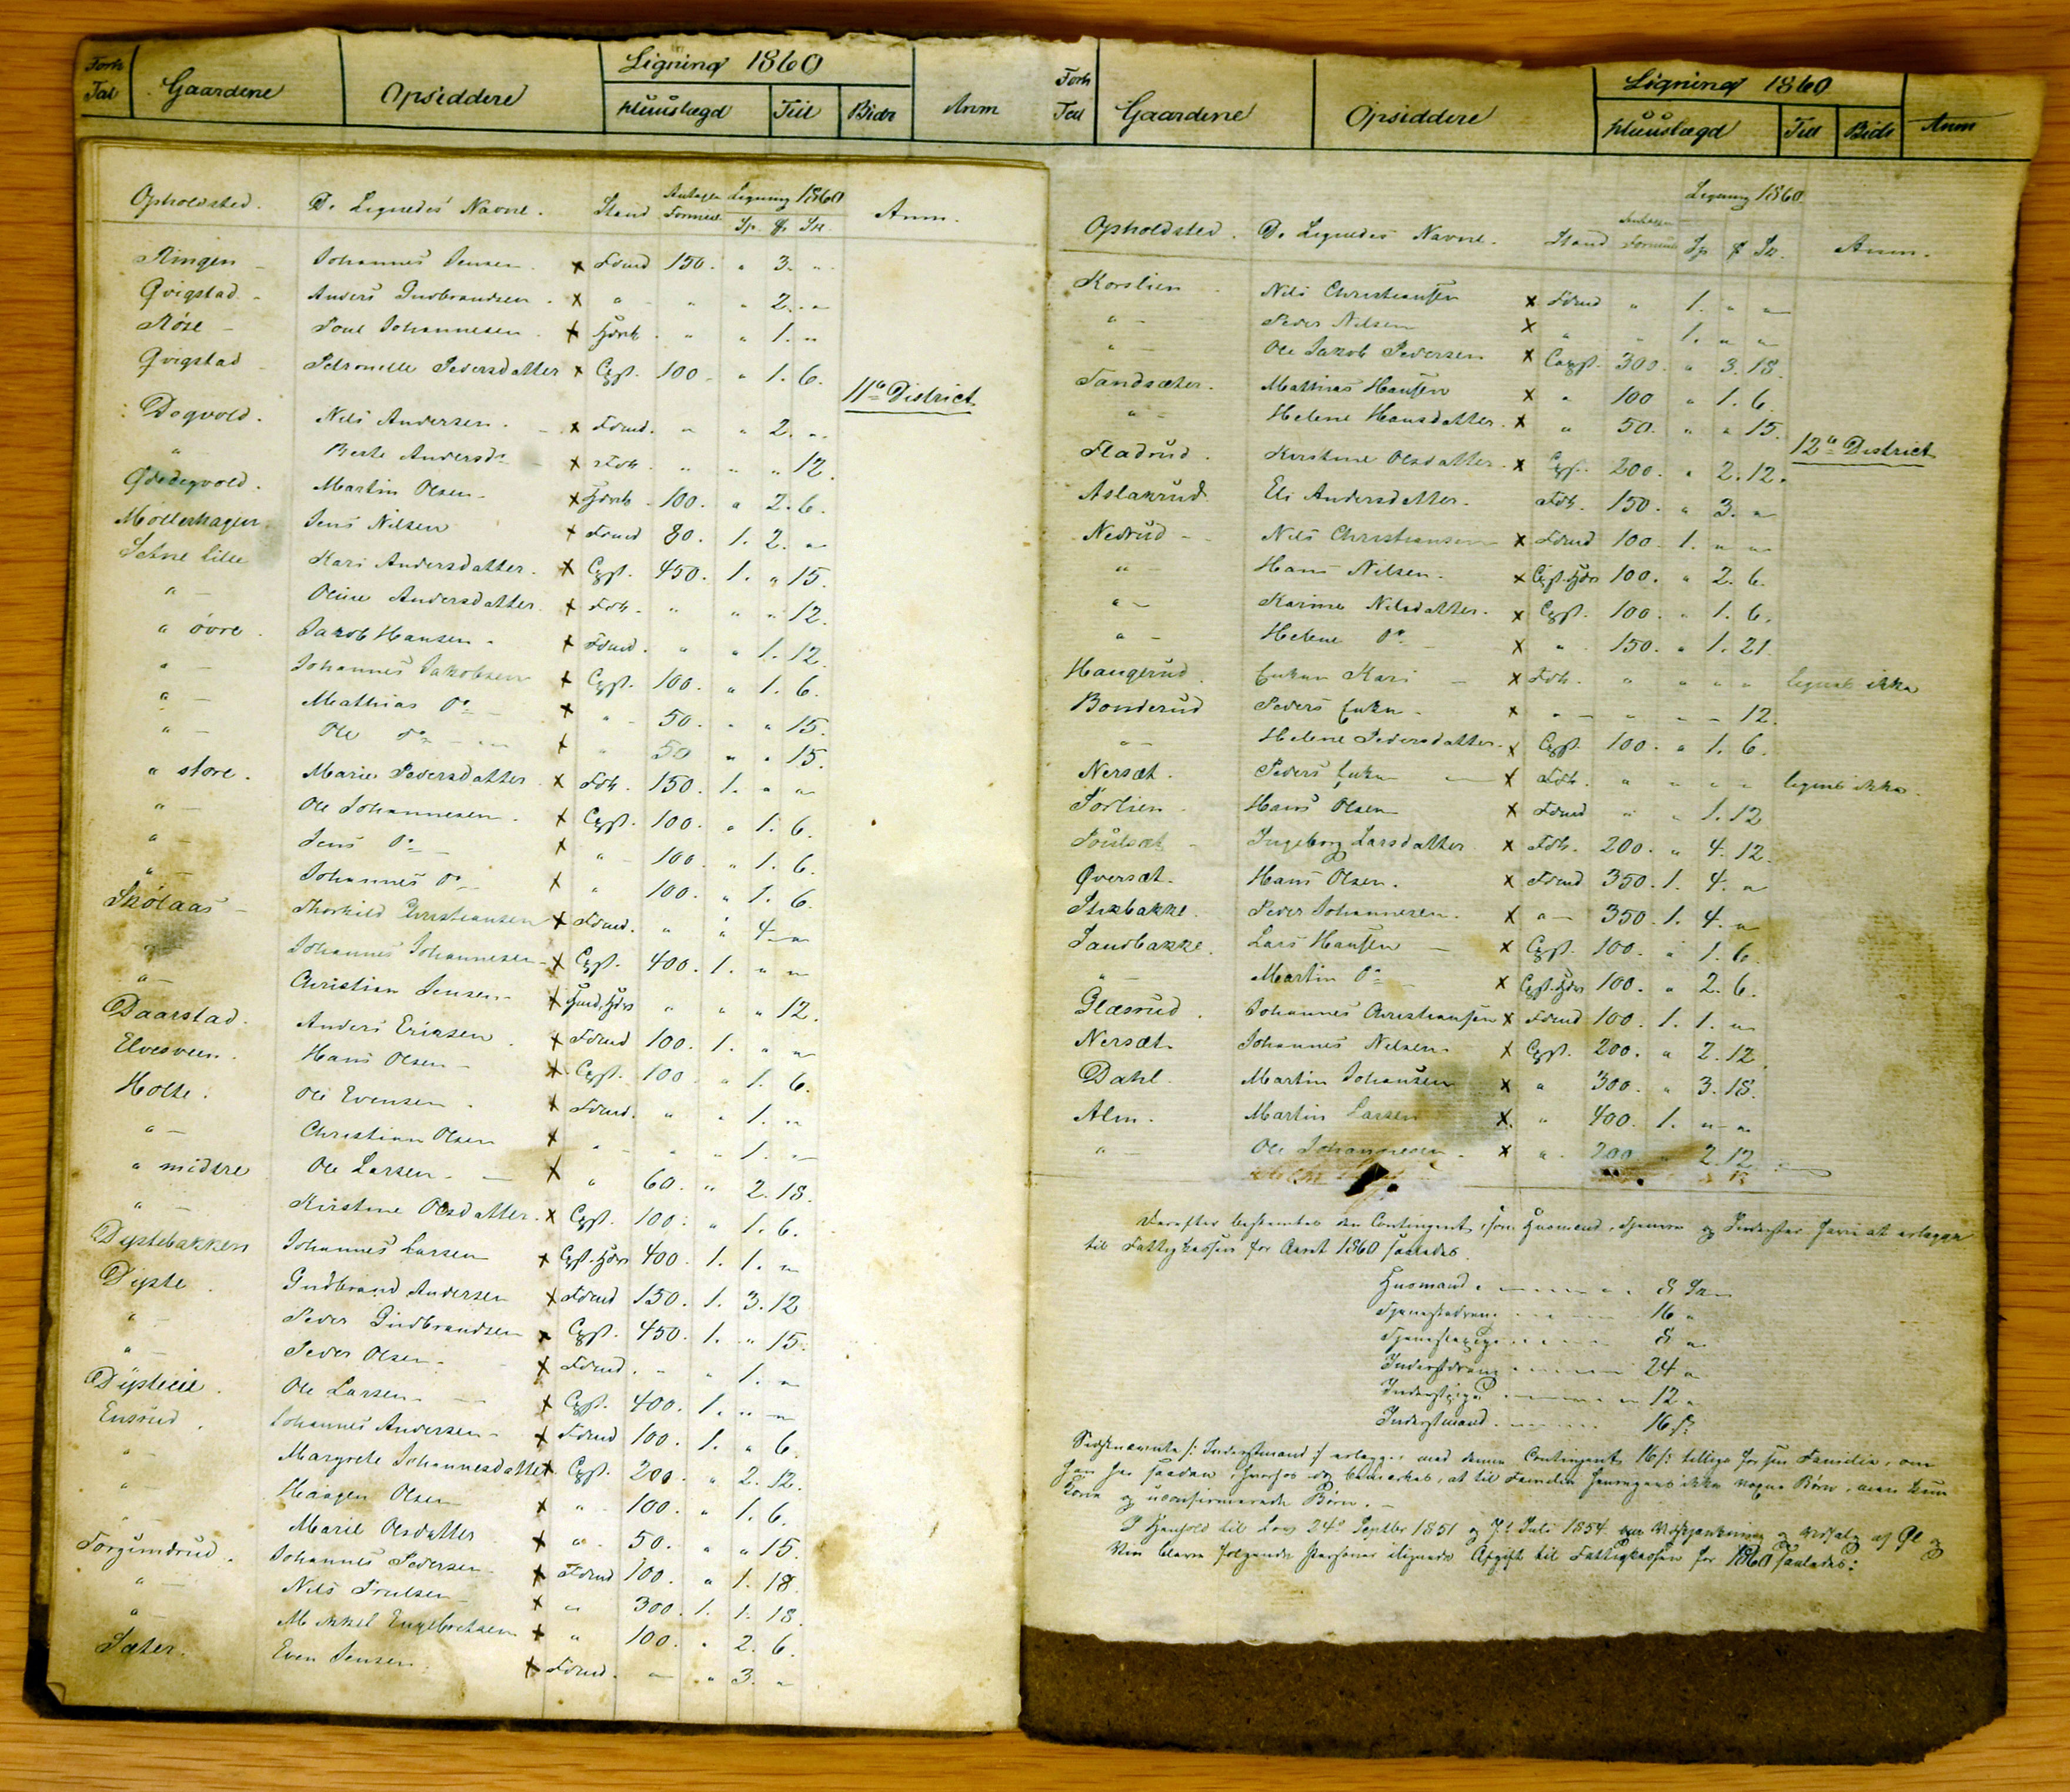 Forh Tal Gaardene Opsiddere Ligning 1860 Huuslægd Till Bidr Anm
Opholdsted. De Lignedes Navne. Stand Antagen Formue Ligning 1860 Sp. Sk. Anm.
Ringen - Johannes Jensen. x Fdmd 150. " 3. "
Qvigstad - Anders Gudbrandsen. x " " " 2. "
Røse - Poul Johannesen. x " " 1. "
Qvigstad - Petronelle Pedersdatter x 100. " 1. 6.
11te District
Degvold. Nils Andersen. x Fdmd. " " 2. "
" Berte Andersdr - x Fdk. " " " 12.
Martin Olsen - x 100. " 2. 6.
Mollerhagen Jens Nilsen x Fdmd 80. 1. 2. "
Setne lille Kari Andersdatter. x 450. 1. " 15.
" - Oline Andersdatter. x Fdk. " " " 12.
" övre. Jakob Hansen. x Fdmd. " " 1. 12.
" - Johannes Jakobsen x 100. " 1. 6.
" - Mathias Do - x " 50. " " 15.
" - Ole do x " 50 " " 15.
" store. Marie Pedersdatter x Fdk. 150. 1. " "
" - Ole Johannesen. x 100. " 1. 6.
" - Jens Do - x " 100. " 1. 6.
" - Johannes Do x " 100. " 1. 6.
Skölaas - Thorkild Christiansen x Fdmd. " " 4. "
" - Johannes Johannesen - x 400. 1. " "
" - Christian Jensen x " " " 12.
Daarstad. Anders Eriksen. x Fdmd 100. 1. " "
Elvesveen. Hans Olsen - x 100 " 1. 6.
Holte. Ole Evensen. x Fdmd. " " 1. "
" - Christian Olsen x " " " 1. "
" midtre Ole Larsen - x " 60. " 2. 18.
" - Kirstine Olsdatter. x 100. " 1. 6.
Dystebakken Johannes Larsen x 400. 1. 1. "
Dyste. Gudbrand Andersen x Fdmd 150. 1. 3. 12
" - Peder Gudbrandsen x 450. 1. " 15.
" - Peder Olsen - x Fdmd. " " 1. "
Ole Larsen - x 400. 1. " "
Ensrud. Johannes Andersen - x Fdmd 100. 1. " 6.
" - Margrete Johannesdatter x 200. " 2. 12.
" - Haagen Olsen x " 100. " 1. 6.
" - Marie Olsdatter x " 50. " " 15.
Torgundrud. Johannes Pedersen. x Fdmd 100. " 1. 18.
" - Nils x " 300. 1. 1. 18.
" - Mikkel Engebretsen x " 100. " 2. 6.
Sæter. Even Jensen. x Fdmd. " " 3. "
Forh Tal Gaardene Opsiddere Ligning 1860 Huuslægd Till Bidr Anm
Opholdsted. De Lignedes Navne. Stand Antagen Formue Ligning 1860 Sp Sk. Anm.
Korslien - Nils Christiansen x Fdmd " 1. " "
" - Peder Nilsen x " " 1. " "
" - Ole Jakob Pedersen x 300. " 3. 18.
Sandsæter. Mathias Hansen x " 100 " 1. 6.
" - Helene Hansdatter. x " 50. " " 15.
12te District
Fladrud. Kirstine Olsdatter. x 200. " 2. 12.
Aslakrud Eli Andersdatter. Fdk. 150. " 3. "
Nedrud - Nils Christiansen x Fdmd 100. 1. " "
" - Hans Nilsen. x 100. " 2. 6.
" - Karine Nilsdatter. x 100. " 1. 6.
" - Helene Do - x " 150. " 1. 21.
Haugerud. Enken Kari - x Fdk. " " " " lignes ikke
Bonderud Peders Enke - x " " " " 12.
" - Helene Pedersdatter. x 100. " 1. 6.
Nersæt. Peders Enke - x Fdk. " " " " lignes ikke.
Sørlien. Hans Olsen x Fdmd " " 1. 12
Ingeborg Larsdatter x Fdk. 200. " 4. 12.
Øversæt. Hans Olsen. x Fdmd 350. 1. 4. "
Stikbakke. Peder Johannesen. x " 350. 1. 4. "
Sandbakke. Lars Hansen - x 100. " 1. 6.
" - Martin Do - x 100. " 2. 6.
Glæsrud. Johannes Christiansen x Fdmd 100. 1. 1. "
Nersæt. Johannes Nilsen. x 200. " 2. 12.
Dahl. Martin Johansen x " 300. " 3. 18.
Alm. Martin Larsen x. " 400. 1. " "
" - Ole Johannesen. x " 200 " 2. 12
Derefter bestemtes den Contingent, som Huusmænd, Tjenere og Inderster have at erlægge
til Fattigkassen for Aaret 1860 saaledes.
Huusmænd. 8 Sk
Tjenestedreng 16 "
Tjenestepige 8 "
Inderstdreng 24 "
Inderstpige 12 "
Inderstmand 16 s:
/: Inderstmand :/ erlægger med denne Contingent 16 s: tillige for sin Familie, om
han har saadan, hvorhos bemærkes, at til Familie henregnes ikke voxne Børn, men kun
Kone og uconfirmerede Børn. -
I Henhold til Lov 24de Septbr 1851 og 7de Juli 1854 Udskjænkning og Udsalg af Øl og
Viin bleve følgende Personer ilignede Afgift til Fattigkassen for 1860 saaledes: